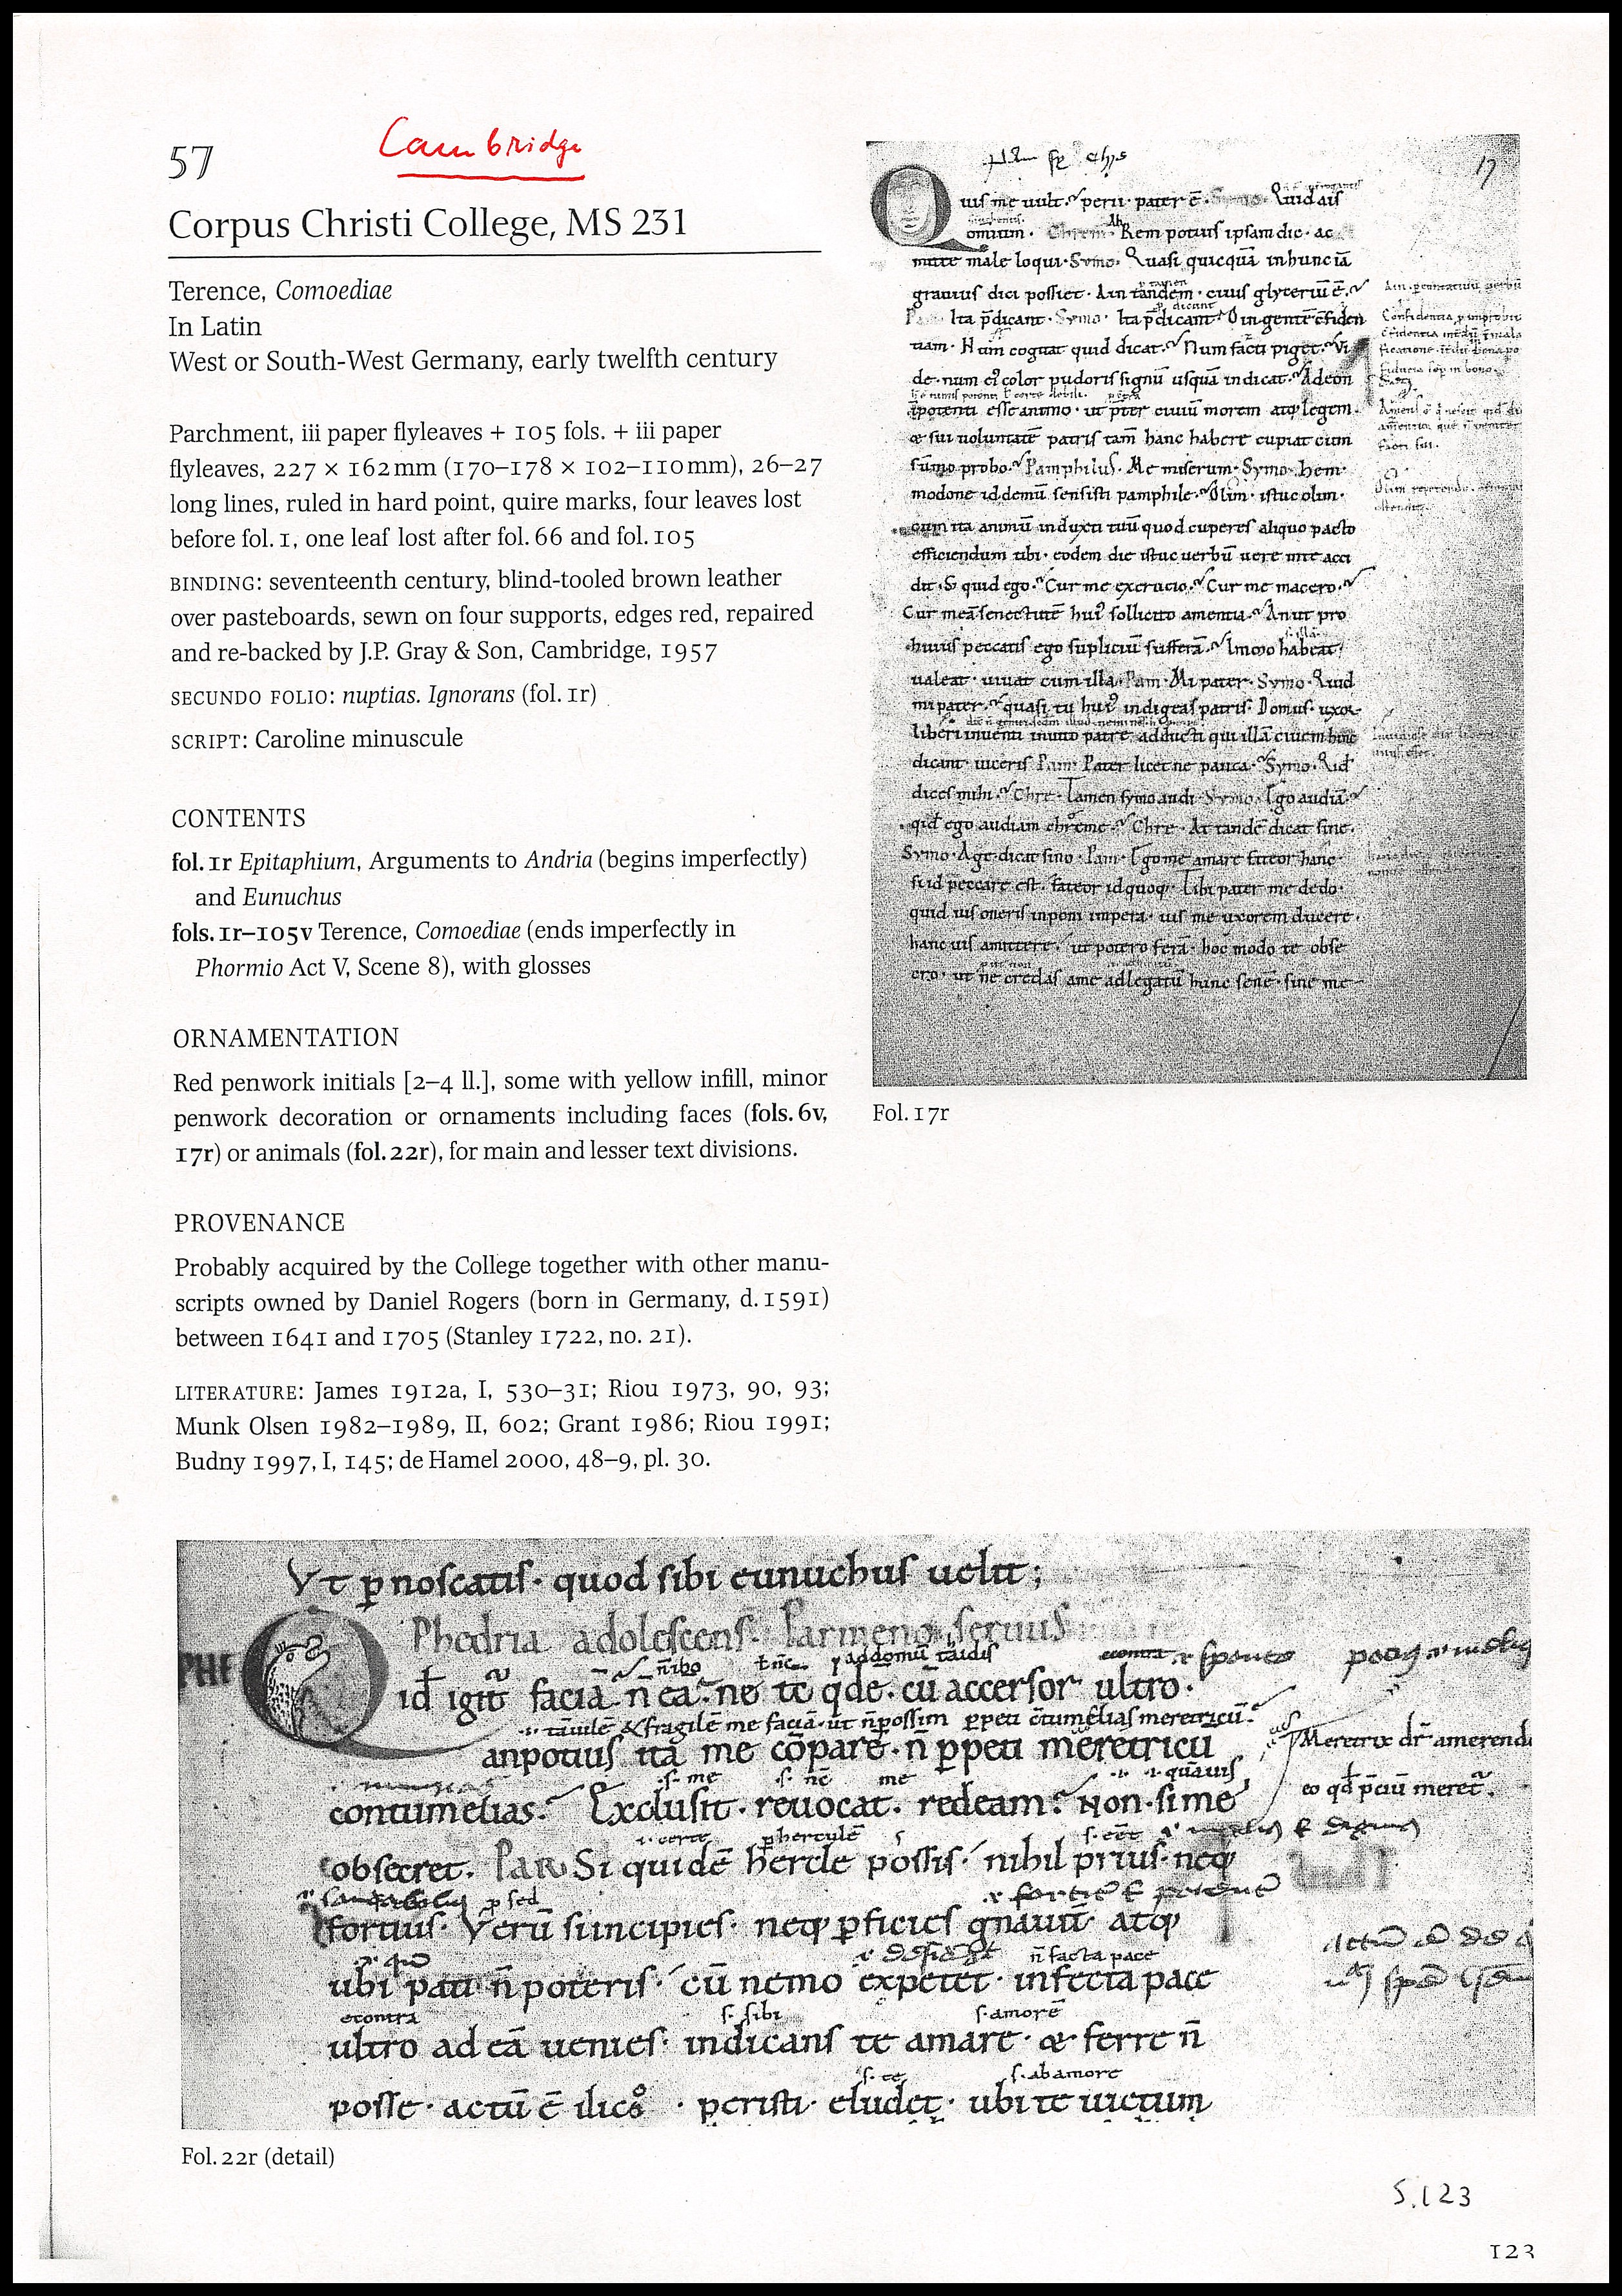 57
Cambridge
Corpus Christi College, MS 231
Terence, Comoediae
In Latin
West or South-West Germany, early twelfth century
Parchment, iii paper flyleaves + 105 fols. + iii paper
flyleaves, 227 × 162mm (170–178 × 102–110mm), 26–27
long lines, ruled in hard point, quire marks, four leaves lost
before fol. 1, one leaf lost after fol. 66 and fol. 105
BINDING: seventeenth century, blind-tooled brown leather
over pasteboards, sewn on four supports, edges red, repaired
and re-backed by J.P. Gray & Son, Cambridge, 1957
SECUNDO FOLIO: nuptias. Ignorans (fol. 1r)
SCRIPT: Caroline minuscule
CONTENTS
fol. 1r Epitaphium, Arguments to Andria (begins imperfectly)
and Eunuchus
fols. 1r–105v Terence, Comoediae (ends imperfectly in
Phormio Act V, Scene 8), with glosses
ORNAMENTATION
Red penwork initials [2–4 ll.], some with yellow infill, minor
penwork decoration or ornaments including faces (fols. 6v,
17r) or animals (fol. 22r), for main and lesser text divisions.
PROVENANCE
Probably acquired by the College together with other manu-
scripts owned by Daniel Rogers (born in Germany, d. 1591)
between 1641 and 1705 (Stanley 1722, no. 21).
LITERATURE: James 1912a, I, 530–31; Riou 1973, 90, 93;
Munk Olsen 1982–1989, II, 602; Grant 1986; Riou 1991;
Budny 1997, I, 145; de Hamel 2000, 48–9, pl. 30.
17
Quis me uult. perii pater ē. Quid ais
omnium. Rem potius ipsam dic. ac
male loqui. Symo. Quasi quicquā in hunc iā
grauius dici possiet. Ain tandem. ciuis gliceriū ē.
Ita p̄dicant. Symo. Ita p̄dicant. O ingentē cfiden
tiam. Num cogitat quid dicat. Num facti piget. Vi
de. num ei color pudoris signū usquā indicat. Adeon
īpotenti esse animo. ut pter ciuiū morem atq; legem.
& sui uoluntatē patris tam hanc habere cupiat cum
sūmo probo. Pamphilus. Me miserum. Symo. hem.
modone id demū sensisti pamphile. Olim. istuc olim.
cum ita animū induxti tuū quod cuperes aliquo pacto
efficiendum tibi. eodem die istuc uerbū uere in te acci
dit. S; quid ego. Cur me excrucio. Cur me macero.
Cur meā senectutē hui' sollicito amentia. An ut pro
huius peccatis ego supliciū sufferā. Immo habeat
ualeat. uiuat cum illa. Pam. Mi pater. Symo. Quid
mi pater. quasi tu hui' indigeas patris. Domus. uxor
liberi inuenti inuito patre. adducti qui illā ciuem hinc
dicant. uiceris. Pam. Pater licet ne pauca. Symo. Quid
dices mihi. Chre. Tamen symo audi. Symo. Ego audiā
qid ego audiam chreme. Chre. At tandē dicat sine.
Symo. Age dicat sino. Pam. Ego me amare fateor hanc
si id peccare est. fateor id quoq;. Tibi pater me dedo.
quid uis oneris inponi impera. uis me uxorem ducere.
hanc uis amittere. ut potero ferā. hoc modo te obse
cro. ut ne credas a me adlegatū hunc senē. sine me
Fol. 17r
Vt p̱noscatis. quod sibi eunuchus uelit;
Phedria adolescens. Parmeno seruus
PHE
Qid igit̄ faciā n̄ eā. ne te q̄de. cū accersor ultro.
anpotius ita me cōpare. n̄ p̱peti meretricū
Meretrix dr̄ amerendo
eo qđ p̄ciū meret.
contumelias. Exclusit. reuocat. redeam. Non. si me
obsecret. Par Si quidē hercle possis. nihil prius. neq;
fortius. Verū si incipies. neq; p̱ficies gnauit̄ atq;
ubi pati n̄ poteris. cū nemo expetet. infecta pace
ultro ad eā uenies. indicans te amare. & ferre n̄
posse. actū ē ilico. peristi. eludet. ubi te uictum
Fol. 22r (detail)
S. 123
123